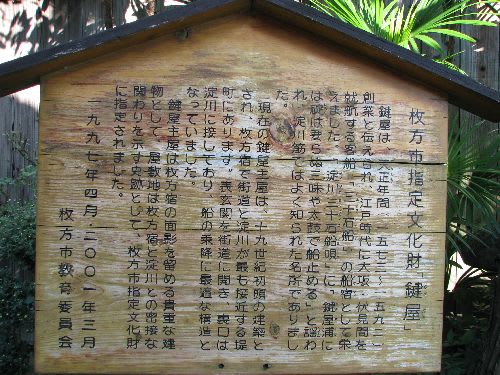 枚方市指定文化財「鍵屋」
鍵屋は、天正年間(一五七三〜一五九二)
創業と伝えられ、江戸時代に大坂・伏見間を
就航する客船「三十石船」の船宿として栄
えました。「淀川三十石船唄」に「鍵屋浦に
は碇は要らぬ三味や太鼓で船止める」と謡わ
れ、淀川筋ではよく知られた名所でありまし
た。
現在の鍵屋主屋は、十九世紀初頭の建築と
され、枚方宿で街道と淀川が最も接近する堤
町にあります。表玄関を街道に開き、裏口は
淀川に接しており、船の乗降に最適な構造と
なっていました。
鍵屋主屋は枚方宿の面影を留める貴重な建
物として、屋敷地は枚方宿と淀川との密接な
関わりを示す史跡として、枚方市指定文化財
に指定されました。
一九九七年四月・二〇〇一年三月
枚方市教育委員会